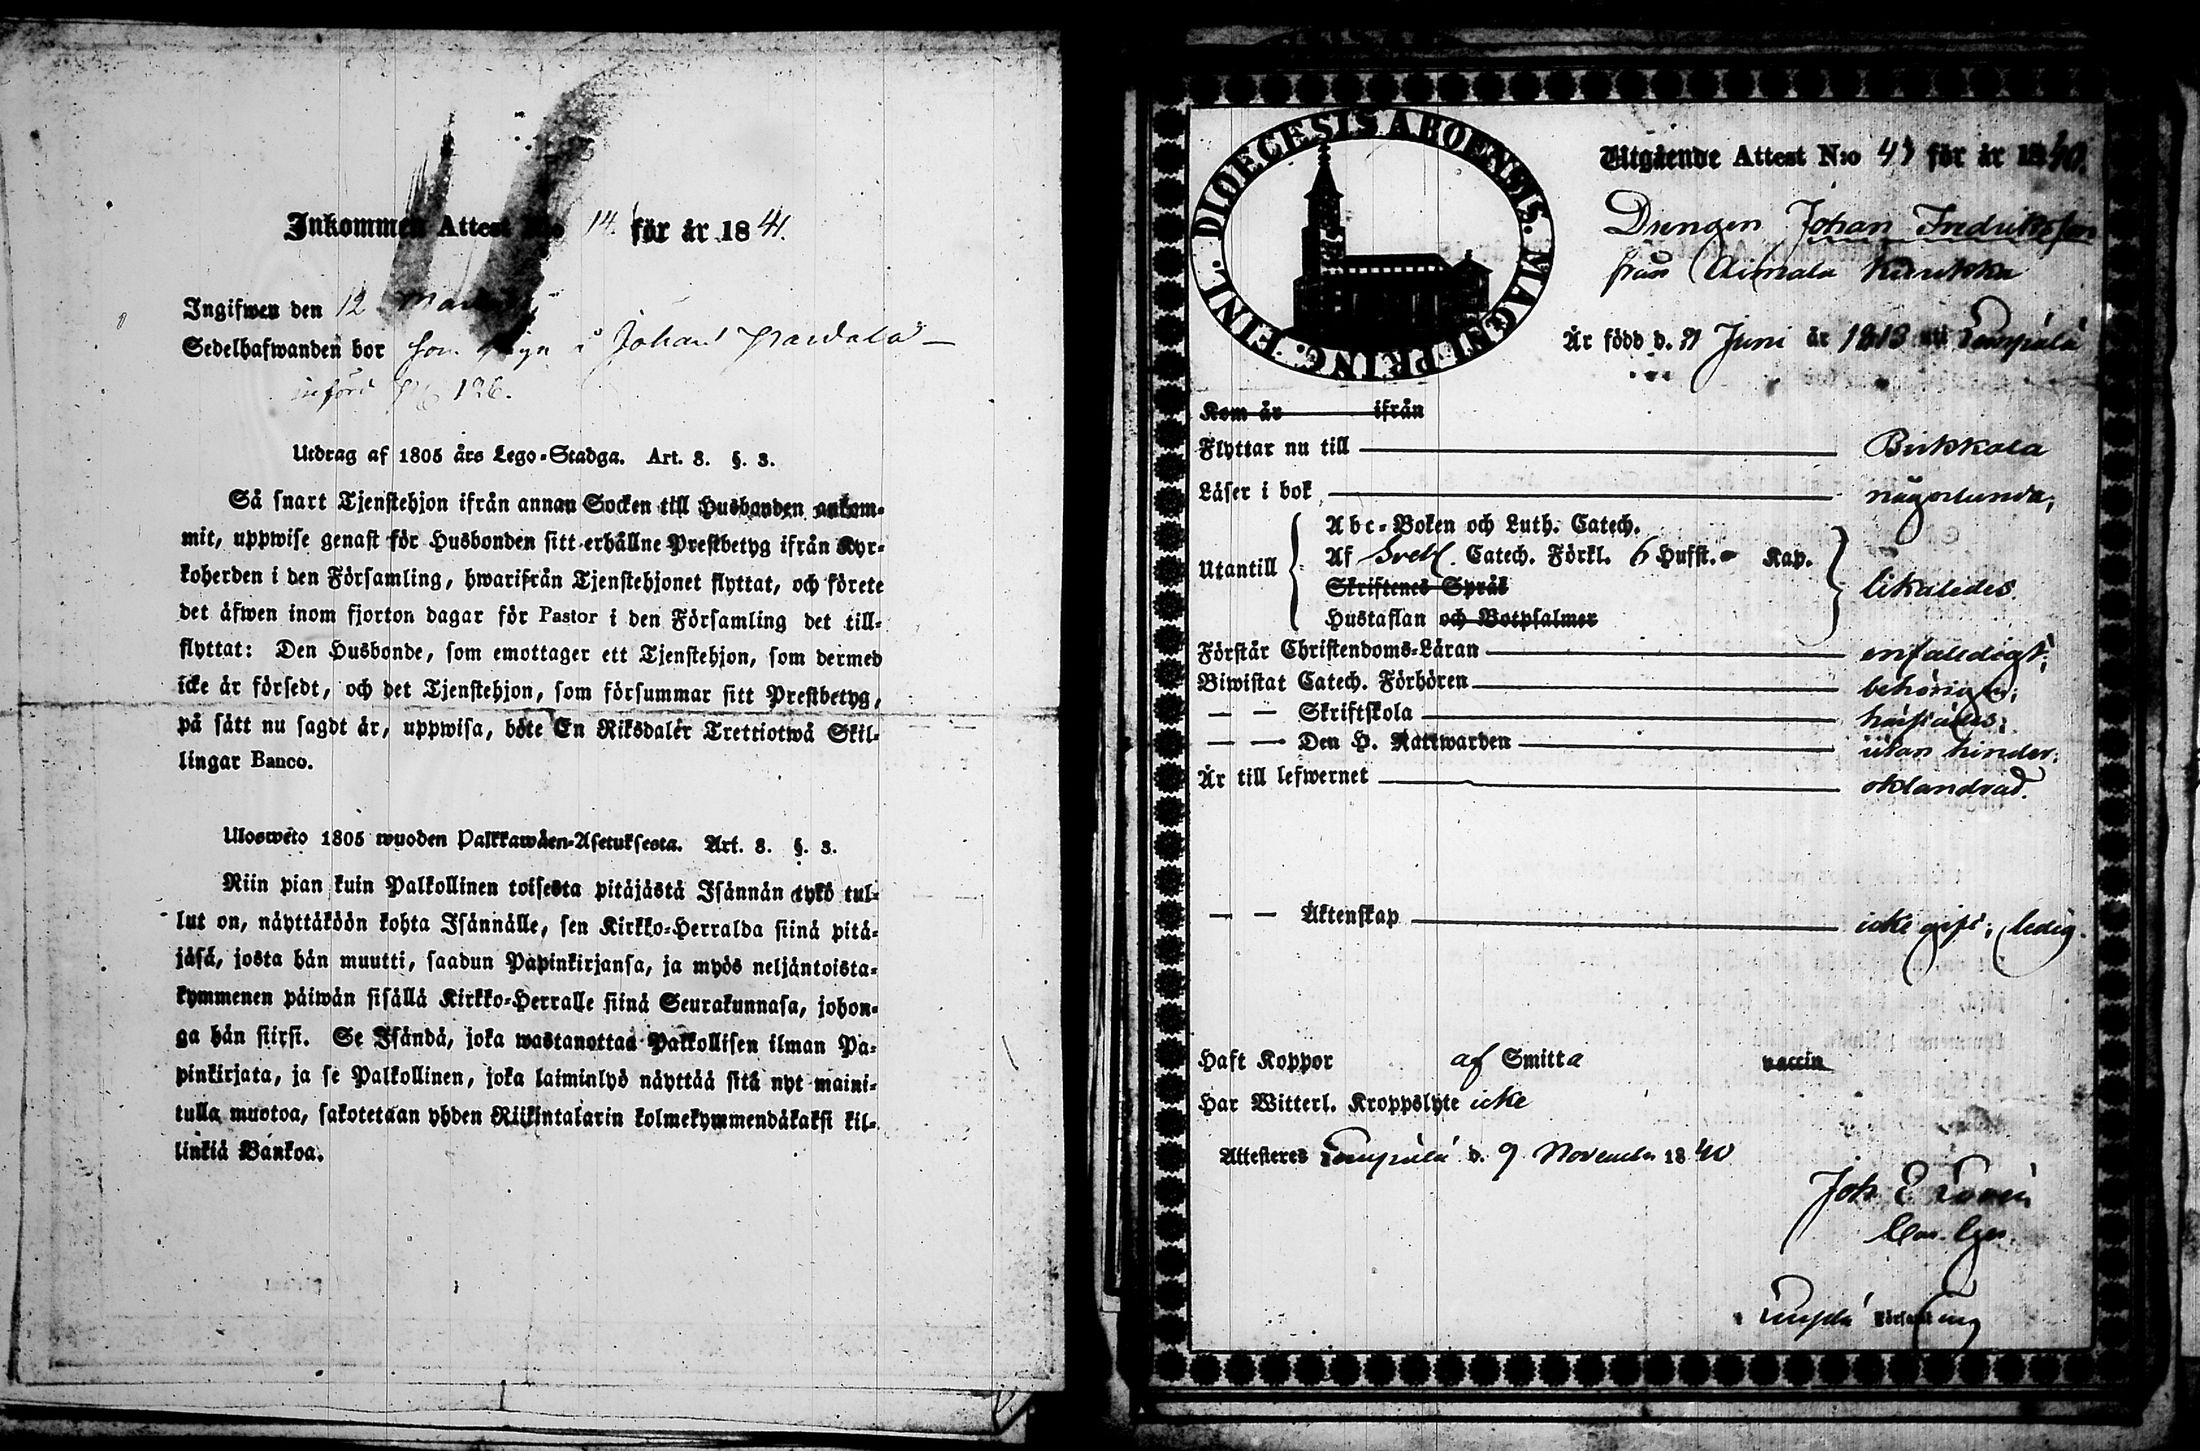 Inkommen Attest No 14. för år 1841.
Ingifwen den 12
Sedelhafwanden bor som å Johan
införd 126.
Utdrag af 1805 års Lego-Stadga. Art. 8. §. 3.
Så snart Tjenstehjon ifrån annan Socken till Husbonden ankom-
mit, uppwise genast för Husbonden sitt erhållne Prestbetyg ifrån Kyr-
koherden i den Församling, hwarifrån Tjenstehjonet flyttat, och förete
det äfwen inom fjorton dagar för Pastor i den Församling det till-
flyttat: Den Husbonde, som emottager ett Tjenstehjon, som dermed
icke är försedt, och det Tjenstehjon, som försummar sitt Prestbetyg,
på sätt nu sagdt är, uppwisa, böte En Riksdaler Trettiotwå Skil-
lingar Banco.
Ulosweto 1805 wuoden Palkkawäen-Asetuksesta. Art. 8. §. 3.
Niin pian kuin Palkollinen toisesta pitäjästä Isännän tykö tul-
lut on, näyttäköön kohta Isännälle, sen Kirkko-Herralda siinä pitä-
jäsä, josta hän muutti, saadun Papinkirjansa, ja myös neljäntoista-
kymmenen päiwän sisällä Kirkko-Herralle siinä Seurakunnasa, johon-
ga hän siirsi. Se Isändä, joka wastanottaa Palkollisen ilman Pa-
pinkirjata, ja se Palkollinen, joka laiminlyö näyttää sitä nyt maini-
tulla muotoa, sakotetaan yhden Riikintalarin kolmekymmendäkaksi kil-
linkiä Bankoa.
DIOECESIS ABOENSIS. MAGNI PRINC. FINL.
Utgående Attest N:o 43 för år 1840.
Drengen Johan Fredriksson
från Aimala Kurikka
Är född d. 21 Juni år 1813 uti Lempälä
Kom år ifrån
Flyttar nu till Birkkala
Läser i bok någorlunda;
Abc-Boken och Luth. Catech.
Utantill Af Sveb. Catech. Förkl. 6 Hufst. Kap.
likaledes.
Skriftenes Språk
Hustaflan och Botpsalmer
Förstår Christendoms-Läran enfaldigt;
Biwistat Catech. Förhören behörigen;
— — Skriftskola härstädes;
— — Den H. Nattwarden utan hinder;
Är till lefwernet oklandrad.
— — Äktenskap icke gift; ledig.
Haft Koppor af Smitta vaccin
Har Witterl. Kroppslyte icke
Attesteras Lempälä d. 9 November 1840
Joh. E
Lempälä Församling